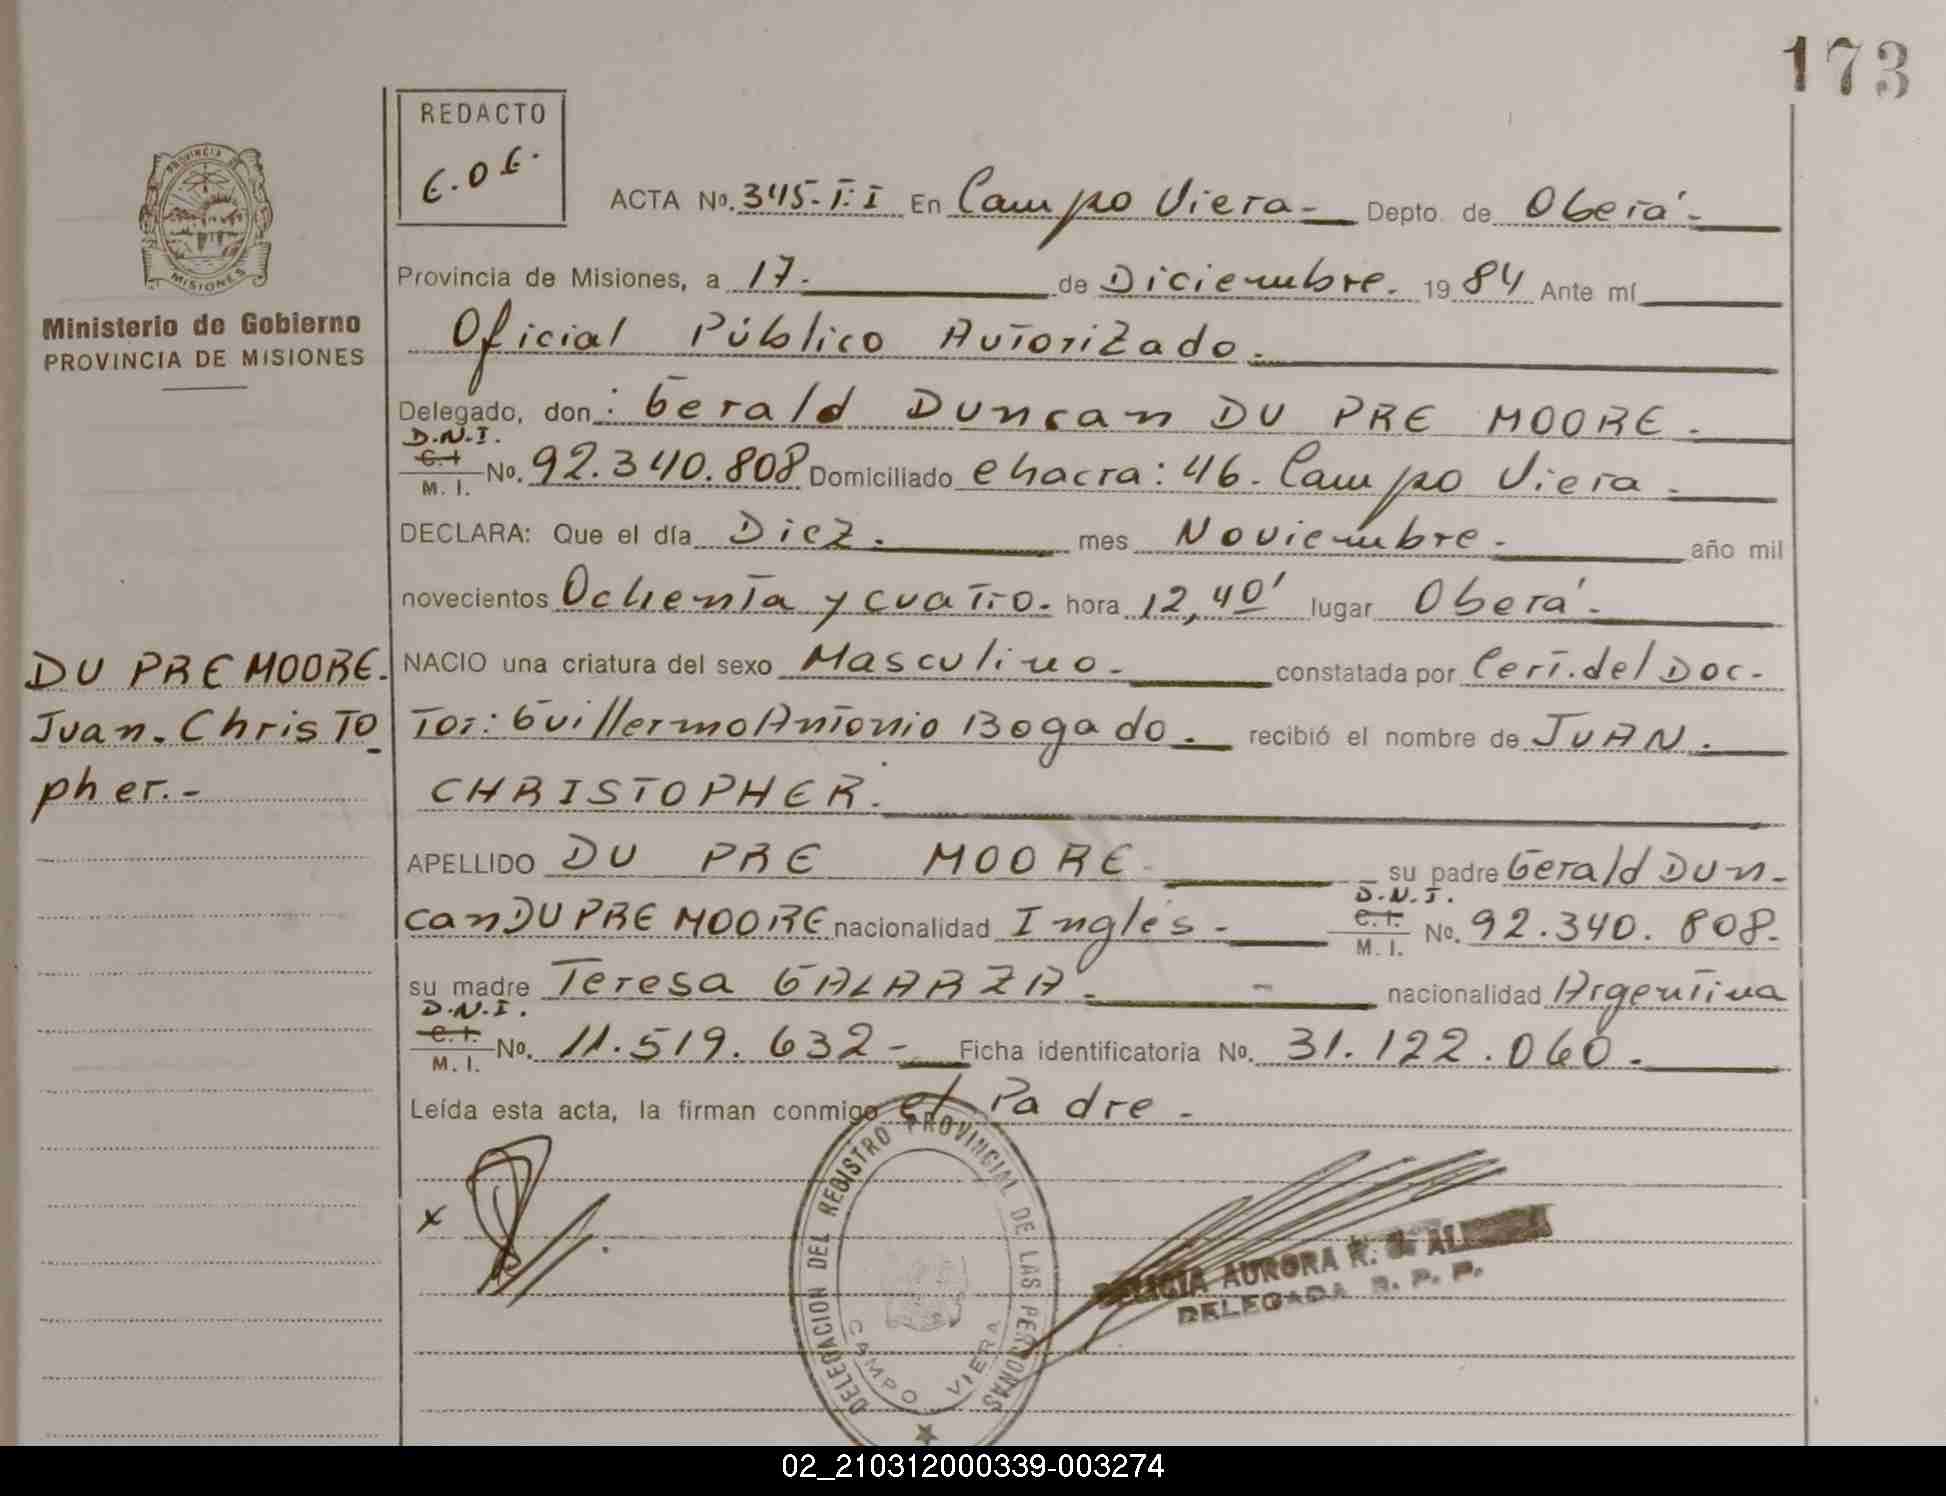 173
REDACTO
E.O.E.
PROVINCIA DE
MISIONES
Ministerio de Gobierno
PROVINCIA DE MISIONES
ACTA No. 345-T:I En Campo Viera- Depto. de Oberá-
Provincia de Misiones, a 17- de Diciembre. 1984 Ante mí
Oficial Público Autorizado.
Delegado, don: Gerald Duncan DU PRE MOORE.
D.N.I.
C.I.
M.I. No. 92.340.808 Domiciliado chacra: 46. Campo Viera.
DECLARA: Que el día Diez. mes Noviembre- año mil
novecientos Ochenta y cuatro. hora 12,40' lugar Oberá-
NACIO una criatura del sexo Masculino- constatada por Cert. del Doc-
tor: Guillermo Antonio Bogado. recibió el nombre de JUAN.
CHRISTOPHER.
DU PRE MOORE.
Juan. Christo
pher.-
APELLIDO DU PRE MOORE su padre Gerald Dun-
can DU PRE MOORE nacionalidad Inglés- D.N.I.
C.I.
M.I. No. 92.340.808-
su madre Teresa GALARZA- nacionalidad Argentina
D.N.I.
C.I.
M.I. No. 11.519.632- Ficha identificatoria No. 31.122.060.
Leída esta acta, la firman conmigo el Padre-
x
DELEGACION DEL REGISTRO PROVINCIAL DE LAS PERSONAS
CAMPO VIERA
AURORA R.
DELEGADA R. P. P.
02_210312000339-003274